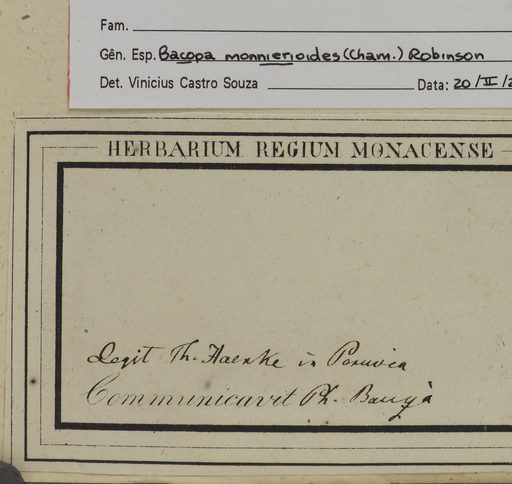 Fam.
Gên. Esp. Bacopa monnierioides (Cham.) Robinson
Det. Vinicius Castro Souza Data: 20/II/2
HERBARIUM REGIUM MONACENSE
Legit Th. Haenke in Peruvia
Communicavit Ph.